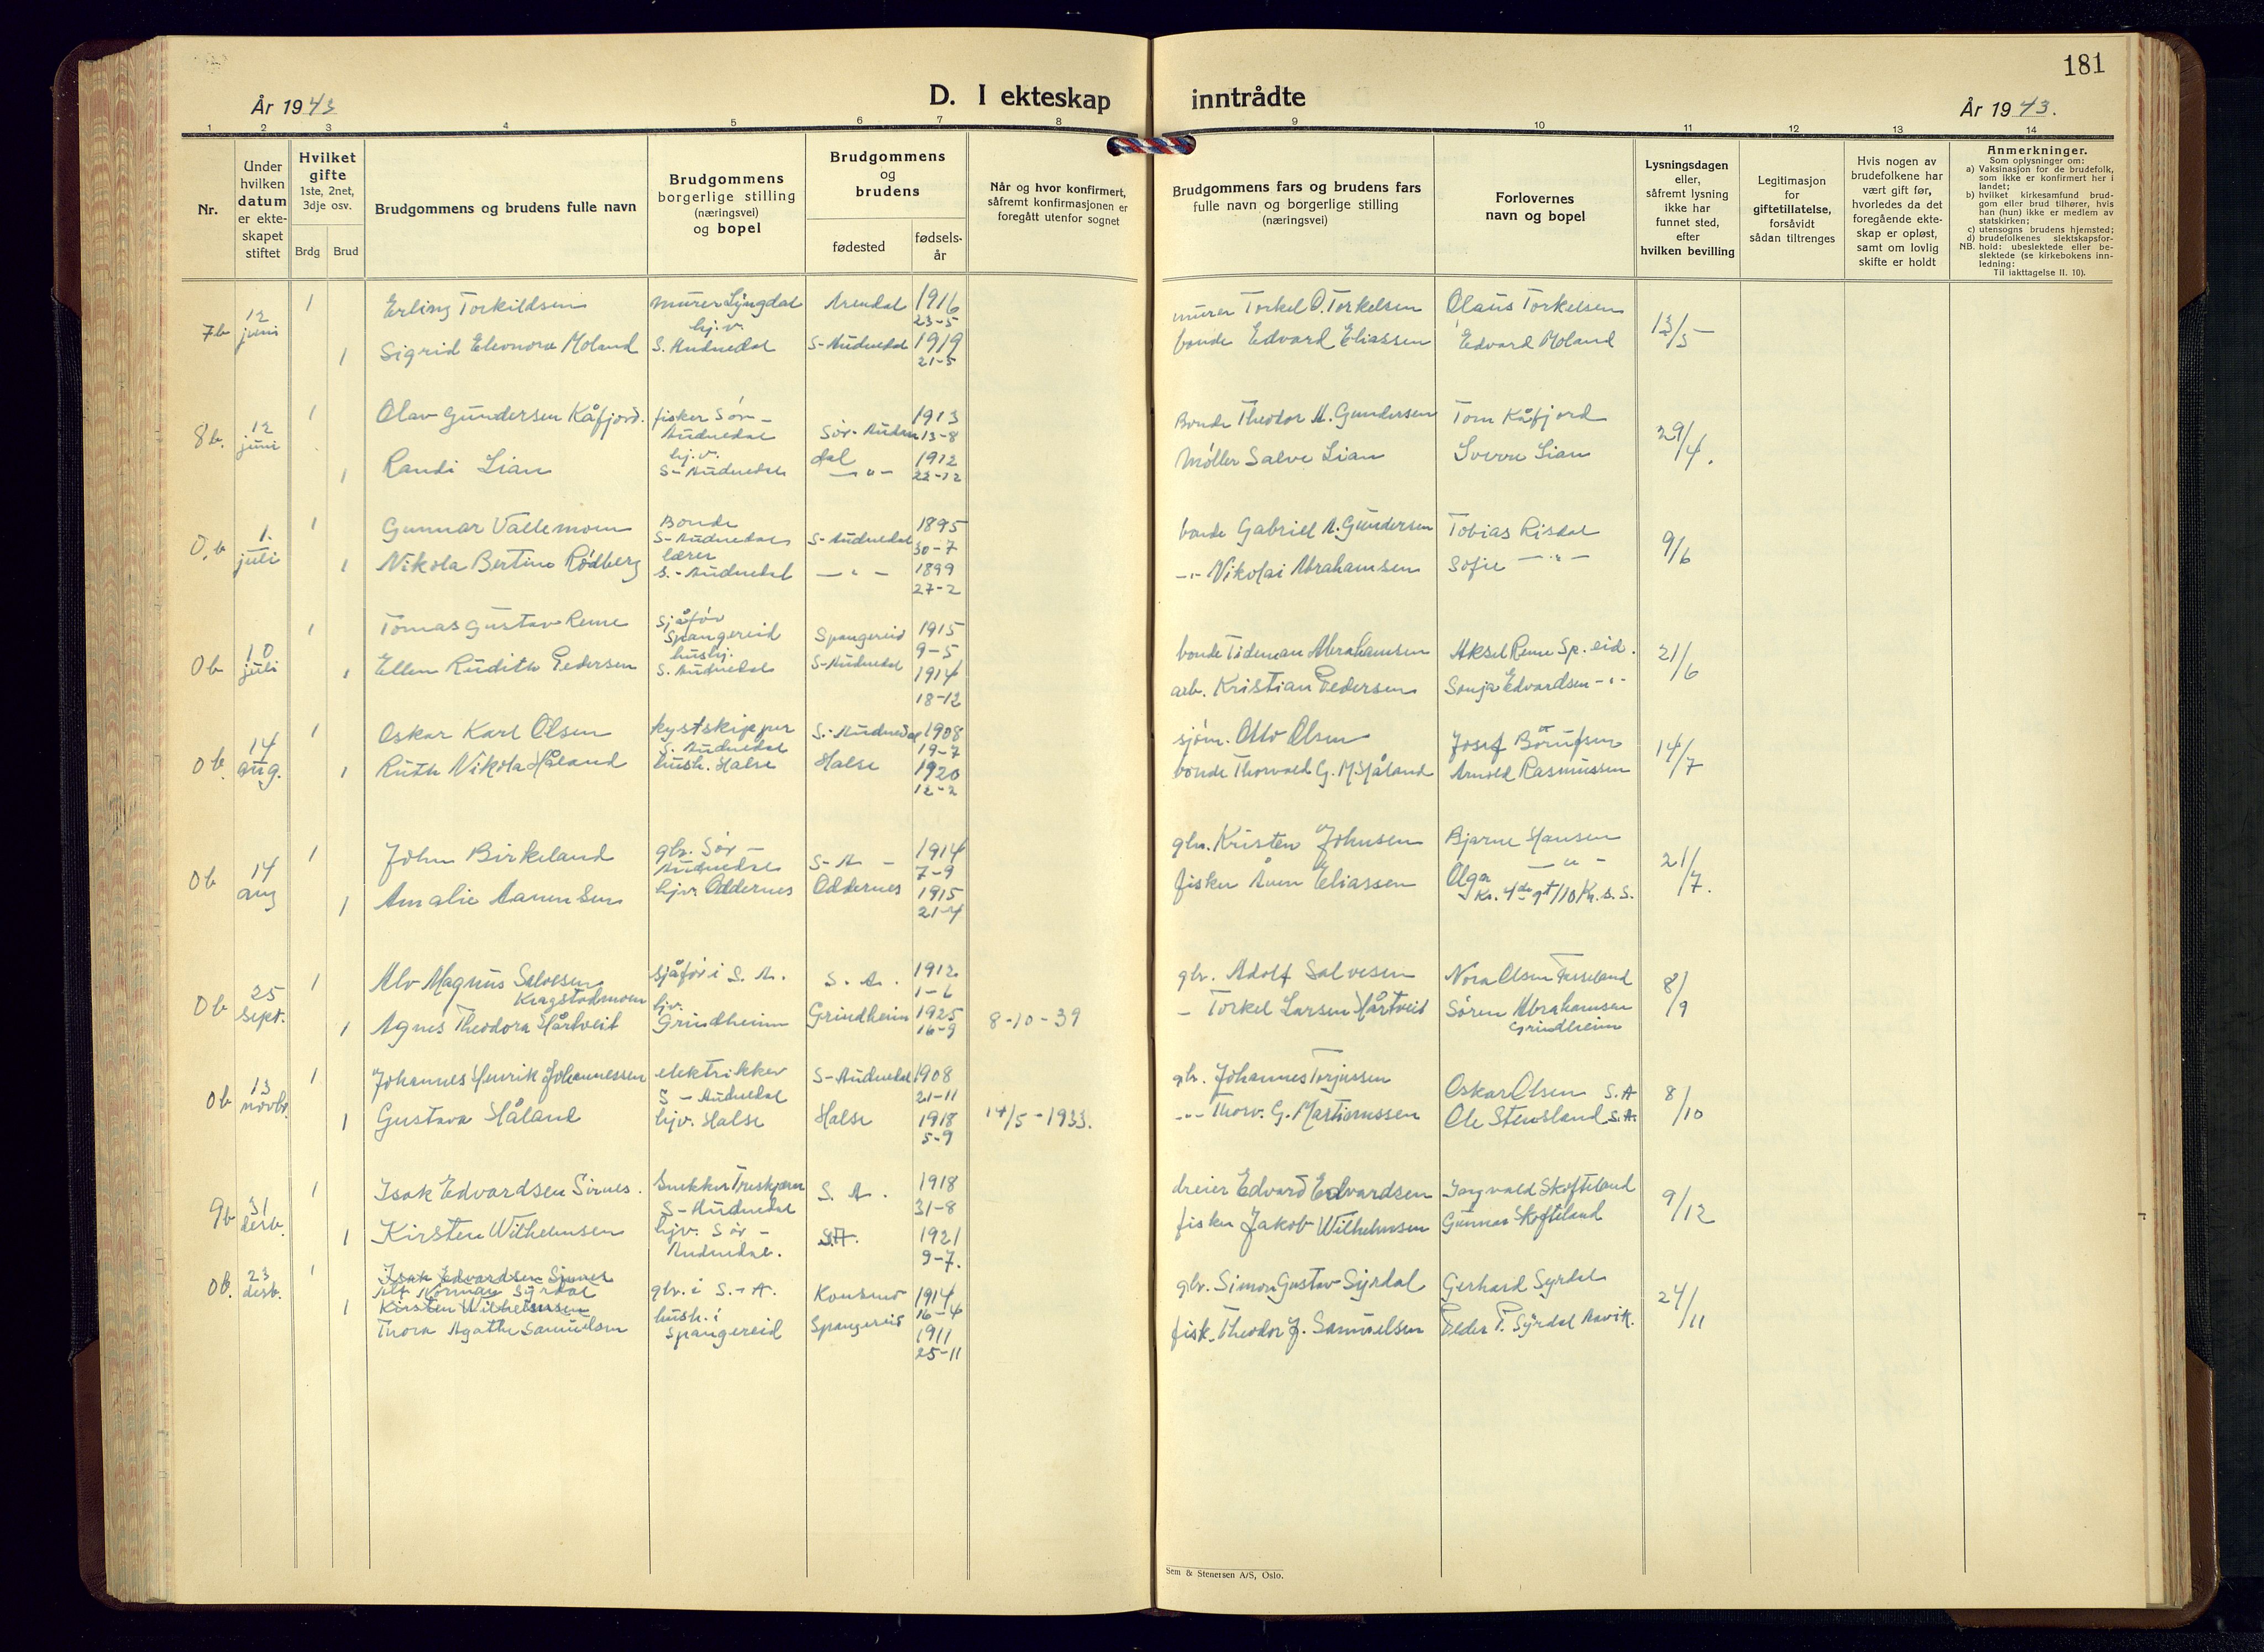 181
År 1943
D. I ekteskap inntrådte
År 1943.
1 2 3 4 5 6 7 8 9 10 11 12 13 14
Nr.
Under
hvilken
datum
er ekte-
skapet
stiftet
Hvilket
gifte
1ste, 2net,
3dje osv.
Brdg Brud
Brudgommens og brudens fulle navn
Brudgommens
borgerlige stilling
(næringsvei)
og bopel
Brudgommens
og
brudens
fødested
fødsels-
år
Når og hvor konfirmert,
såfremt konfirmasjonen er
foregått utenfor sognet
Brudgommens fars og brudens fars
fulle navn og borgerlige stilling
(næringsvei)
Forlovernes
navn og bopel
Lysningsdagen
eller,
såfremt lysning
ikke har
funnet sted,
efter
hvilken bevilling
Legitimasjon
for
giftetillatelse,
forsåvidt
sådan tiltrenges
Hvis nogen av
brudefolkene har
vært gift før,
hvorledes da det
foregående ekte-
skap er opløst,
samt om lovlig
skifte er holdt
Anmerkninger.
Som oplysninger om:
a) Vaksinasjon for de brudefolk,
som ikke er konfirmert her i
landet;
b) hvilket kirkesamfund brud-
gom eller brud tilhører, hvis
han (hun) ikke er medlem av
statskirken;
c) utensogns brudens hjemsted;
d) brudefolkenes slektskapsfor-
NB. hold: ubeslektede eller be-
slektede (se kirkebokens inn-
ledning:
Til iakttagelse II. 10).
7b 12 juni 1 Erling Torkildsen murer Lyngdal Arendal 1916 23-5 murer Torkel O. Torkelsen Olaus Torkelsen 13/5 -
1 Sigrid Eleonora Moland hj.v. S. Audnedal S-Audnedal 1919 21-5 bonde Edvard Eliassen Edvard Moland
8b. 12 juni 1 Olav Gundersen Kåfjord. fisker Sør-Audnedal Sør-Audnedal 1913 13-8 Bonde Theodor A. Gundersen Tom Kåfjord 29/4.
1 Randi Lian hj.v. S-Audnedal -"- 1912 22-12 Møller Salve Lian Sverre Lian
0.b 1. juli 1 Gunnar Vallemoen Bonde S-Audnedal S-Audnedal 1895 30-7 bonde Gabriel A. Gundersen Tobias Risdal 9/6
1 Nikola Bertine Rødberg lærer S.-Audnedal -"- 1899 27-2 -"- Nikolai Abrahamsen Sofie -"-
0b 10 juli 1 Tomas Gustav Reme sjåfør Spangereid Spangereid 1915 9-5 bonde Tideman Abrahamsen Aksel Reme Sp.eid. 21/6
1 Ellen Rudith Pedersen hushj. S. Audnedal S-Audnedal 1914 18-12 arb. Kristian Pedersen Sonja Edvardsen -"-
0b. 14 aug. 1 Oskar Karl Olsen kystskipper S. Audnedal S.-Audnedal 1908 19-7 sjøm. Otto Olsen Josef 14/7
1 Ruth Nikola Håland hush. Halse Halse 1920 12-2 bonde Thorvald G. M. Håland Arnold Rasmussen
0b 14 aug 1 John Birkeland gbr. Sør-Audnedal S-A- 1914 7-9 gbr. Kristen Johnsen Bjarne Hansen 21/7.
1 Amalie Aanensen hjv. Oddernes Oddernes 1915 21-4 fisker Aanen Eliassen Olga -"-
Kr. 4de gt/10 Kr. S. S.
0b 25 sept. 1 Alv Magnus Salvesen Kragstadmoen sjåfør i S. A. S. A. 1912 1-6 gbr. Adolf Salvesen Nora Olsen 8/9
1 Agnes Theodora Hårtveit hjv. Grindheim Grindheim 1925 16-9 8-10-39 - Torkel Larsen Hårtveit Søren Abrahamsen Grindheim
0b 13 novbr. 1 Johannes Henrik Johannessen elektrikker S-Audnedal S-Audnedal 1908 21-11 gbr. Johannes Torjussen Oskar Olsen S.A 8/10
1 Gustava Håland hjv. Halse Halse 1918 5-9 14/5-1933. -"- Thorv. G. Martiniussen Ole Stensland S.A.
9b 31 desb. 1 Isak Edvardsen Sirnes. S-Audnedal S. A. 1918 31-8 dreier Edvard Edvardsen Ingvald Skofteland 9/12
1 Kirsten Wilhelmsen hjv. Sør-Audnedal. S.A. 1921 9-7. fisker Jakob Wilhelmsen Gunnar Skofteland
0b. 23 desb. 1 Isak Edvardsen Sirnes
Alf Norman Syrdal gbr. i S.-A. Konsmo 1914 16-4 gbr. Simon Gustav Syrdal Gerhard Syrdal 24/11
1 Kirsten Wilhelmsen
Thora Agathe Samuelsen hush. i Spangereid Spangereid 1911 25-11 fisk. Theodor J. Samuelsen Peder T. Syrdal Aavik.
Sem & Stenersen A/S, Oslo.